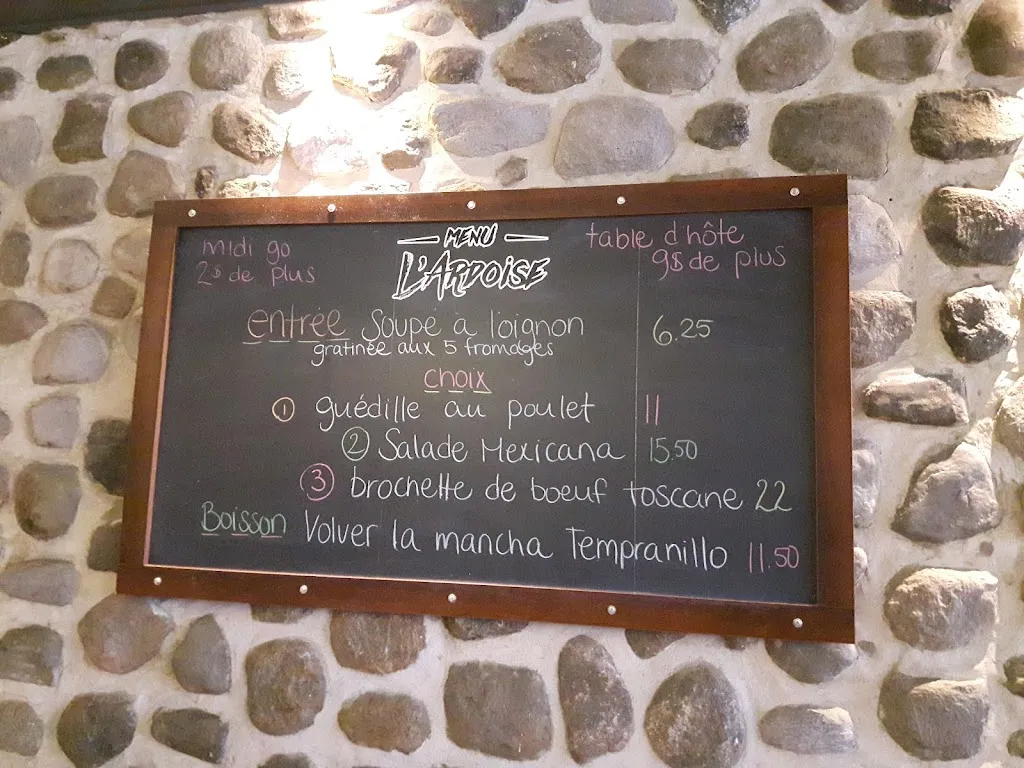 midi go
2$ de plus
MENU
L'ARDOISE
table d'hôte
9$ de plus
entrée Soupe à l'oignon 6.25
gratinée aux 5 fromages
choix
1 guédille au poulet 11
2 Salade Mexicana 15.50
3 brochette de boeuf toscane 22
Boisson Volver la mancha Tempranillo 11.50